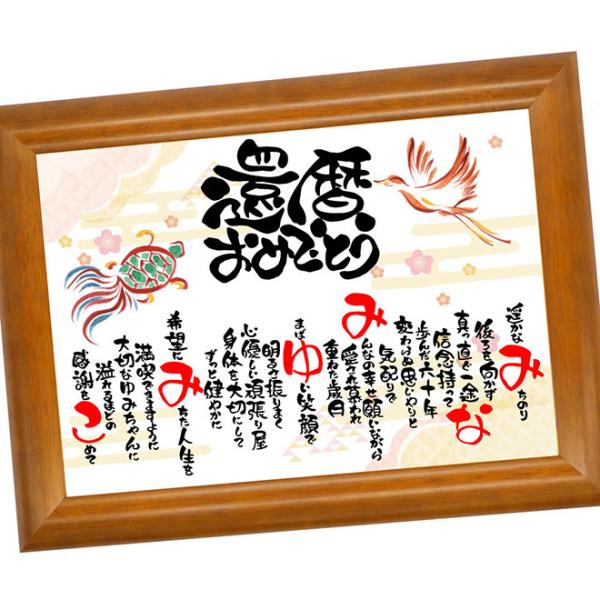 還暦
おめでとう
遥かなみちのり
後ろを向かず
真っ直ぐ一途な
信念持って
歩んだ六十年
変わらぬ思いやりと
気配りで
みんなの幸せ願いながら
愛され慕われ
重ねた歳月
まばゆい笑顔で
明るさ振りまく
心優しい頑張り屋
身体を大切にして
ずっと健やかに
希望にみちた人生を
満喫できますように
大切なゆみちゃんに
溢れるほどの
感謝をこめて